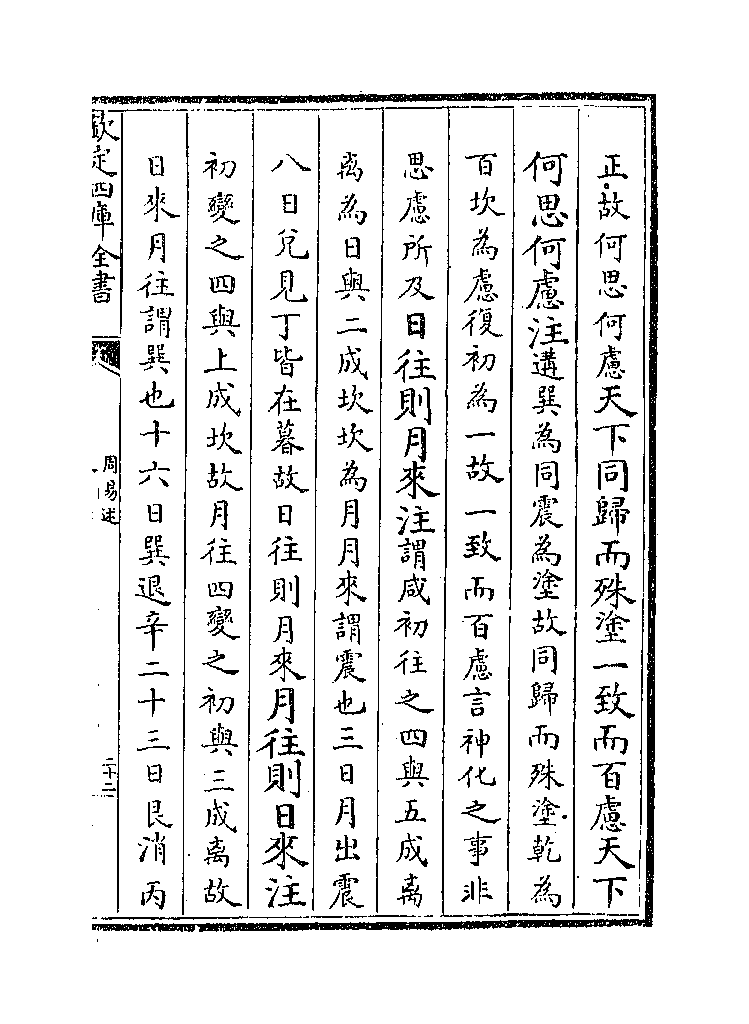 正故何思何慮天下同歸而殊塗一致而百慮天下
何思何慮注遘巽為同震為塗故同歸而殊塗乾為
百坎為慮復初為一故一致而百慮言神化之事非
思慮所及日往則月來注謂咸初往之四與五成离
离為日與二成坎坎為月月來謂震也三日月出震
八日兌見丁皆在暮故日往則月來月往則日來注
初變之四與上成坎故月往四變之初與三成离故
日來月往謂巽也十六日巽退辛二十三日艮消丙
欽定四庫全書
周易述
二十二